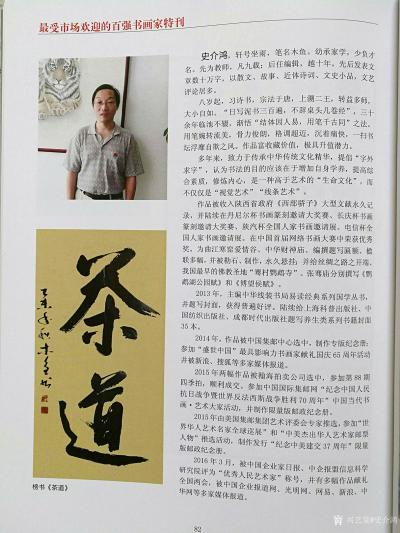 最受市场欢迎的百强书画家特刊
史介鸿，轩号坐雨，笔名木鱼。幼承家学，少负才
名，先为教师，凡九载；后任编辑，越十年。先后发表文
章数十万字，以散文、故事、近体诗词、文史小品，文艺
评论居多。
八岁起，习诗书，宗法于唐，上溯二王，转益多师，
大小自如。“日写泥书三百遍，不辞桌头几卷经”，三十
余年临池不辍，渐悟“结体因人易，用笔千古同”之法，
用笔婉转流美，骨力俊朗，格调超迈，沉着痛快，一扫书
坛浮靡自欺之风，作品富收藏价值，极具升值潜力。
多年来，致力于传承中华传统文化精华，提倡“字外
求字”，认为书法的目的应该在于增加自身学养，提高综
合素质，修炼内心，是一种高于艺术的“生命文化”，而
不仅仅是“视觉艺术”“线条艺术”。
作品被收入陕西省政府《西部骄子》大型文献永久记
录，并陆续在丹尼尔杯书画篆刻邀请大奖赛、长庆杯书画
篆刻邀请大奖赛、陕汽杯全国人家书画邀请展、电信杯全
国人家书画邀请展、在中国首届网络书画大赛中荣获优秀
奖，为曲江寒窑爱情谷、中华财神庙、编撰题写匾额、楹
联多幅，并被勒石、制作，永久悬挂；并给丝绸之路之开端，
我国最早的佛教圣地“骞村鹦鹉寺”、张骞庙分别撰写《鹦
鹉湖公园赋》和《博望侯赋》。
2013年，主编中华线装书局易读经典系列国学丛书，
并题写封面，获得普遍好评。陆续给上海科普出版社、中
国纺织出版社、成都时代出版社题写养生类系列书籍封面
35本。
2014年，作品被中国集邮中心选中，制作专版纪念册；
参加“盛世中国”最具影响力书画家献礼国庆65周年活动
并被新浪、搜狐等多家媒体报道。
2015年两幅作品被瀚海拍卖公司选中，参加第88期
四季拍，顺利成交。参加中国国际集邮网“纪念中国人民
抗日战争暨世界反法西斯战争胜利70周年”中国当代书
画·艺术大家活动，并制作限量版邮政纪念册。
2015年由美国集邮集团艺术评委会专家推选，参加“世
界华人艺术名家全球巡展”和“中美杰出华人艺术家邮票
人物”推选活动，制作发行“纪念中美建交37周年”限量
版邮政纪念册。
2016年3月，被中国企业家日报、中企报盟信息科学
研究院评为“优秀人民艺术家”称号，并有多幅作品献礼
全国两会，被中国企业报道网、光明网、网易、新浪、中
华网等多家媒体报道。
茶道
榜书《茶道》
82